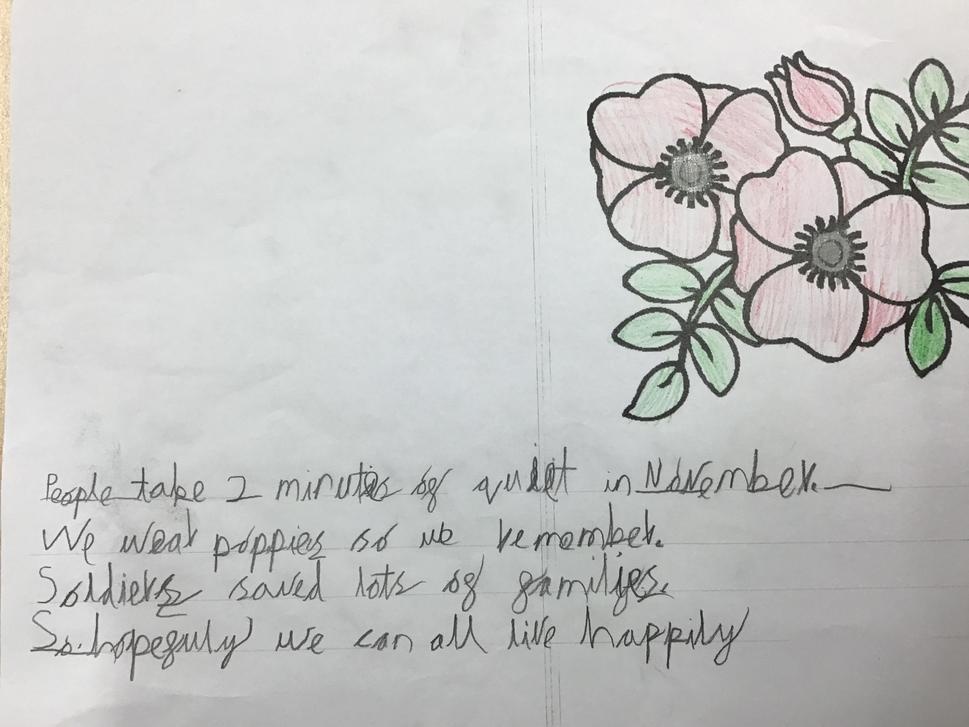 People take 2 minutes of quiet in November.
We wear poppies so we remember.
Soldiers saved lots of families.
So hopefuly we can all live happily